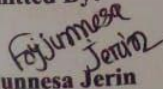 Fajjunnesa
Jerin
unnesa Jerin